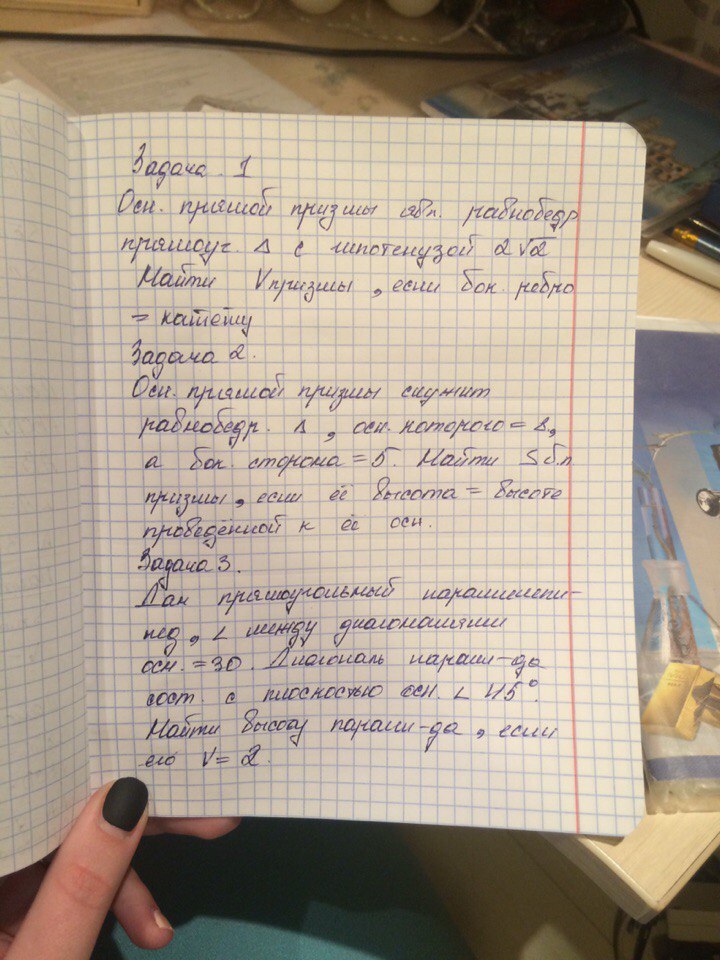 Задача. 1
Осн. прямой призмы явл. равнобедр
прямоуг. Δ с гипотенузой 2√2
Найти Vпризмы, если бок. ребро
= катету
Задача 2.
Осн. прямой призмы служит
равнобедр. Δ, осн. которого =
а бок. сторона = 5. Найти Sб.п
призмы, если её высота = высоте
проведённой к её осн.
Задача 3.
Дан прямоугольный параллелепи-
пед, ∠ между диагоналями
осн. = 30. Диагональ паралл-да
сост. с плоскостью осн. ∠ 45°.
Найти высоту паралл-да, если
его V = 2.